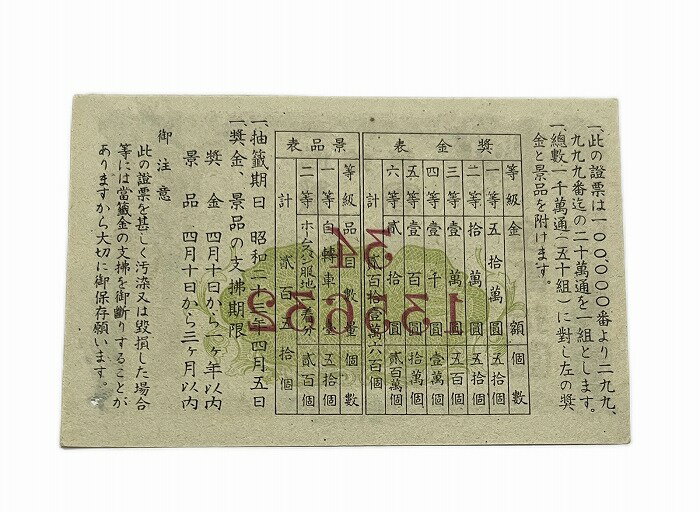 一、此の證票は一〇〇,〇〇〇番より二九九,
九九九番迄の二十萬通を一組とします。
一、總數一千萬通(五十組)に對し左の獎
金と景品を附けます。
獎金表
等級 金額 個數
一等 五拾萬圓 五拾個
二等 拾萬圓 五拾個
三等 壹萬圓 五百個
四等 壹千圓 壹萬個
五等 壹百圓 拾萬個
六等 貳拾圓 貳百萬個
計 貳百拾壹萬六百個
景品表
等級 品目 數量 個數
一等 自轉車 壹臺 五拾個
二等 ホームスパン服地 一着分 貳百個
計 貳百五拾個
一、抽籤期日 昭和二十二年四月五日
一、獎金、景品の支拂期限
獎金 四月十日から一ヶ年以內
景品 四月十日から三ヶ月以內
御注意
此の證票を甚しく汚染又は毀損した場合
等には當籤金の支拂を御斷りすることが
ありますから大切に御保存願います。